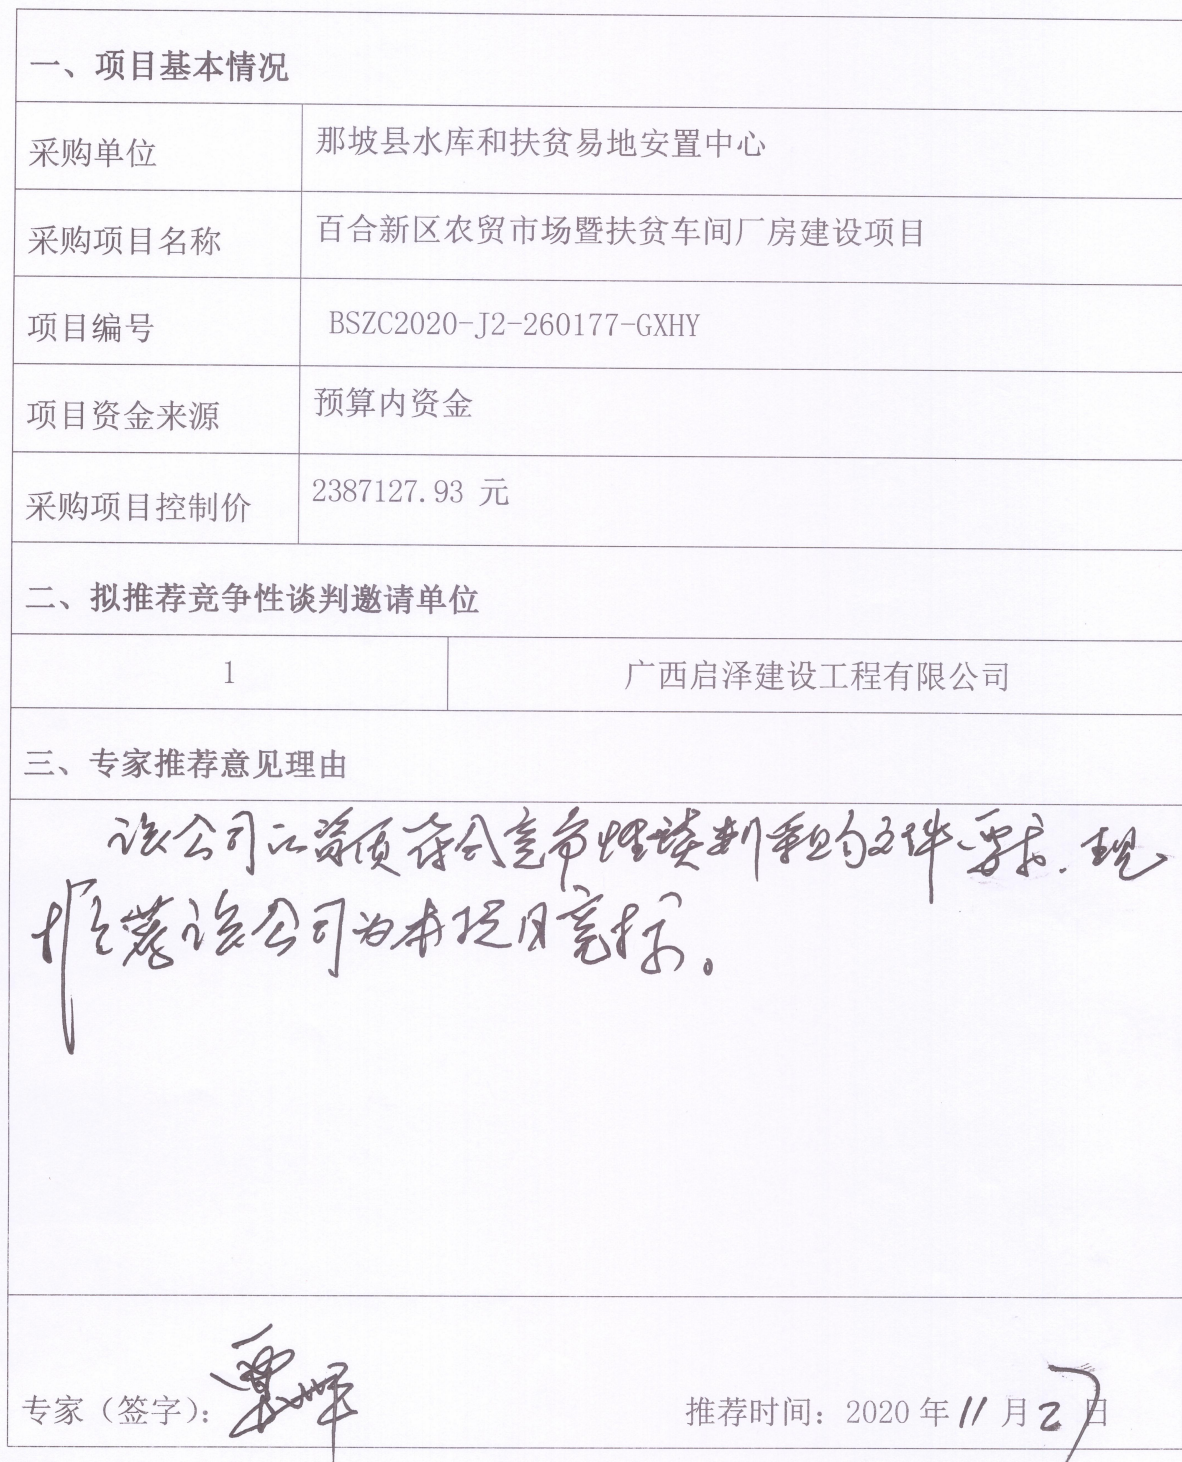 一、项目基本情况
采购单位 那坡县水库和扶贫易地安置中心
采购项目名称 百合新区农贸市场暨扶贫车间厂房建设项目
项目编号 BSZC2020-J2-260177-GXHY
项目资金来源 预算内资金
采购项目控制价 2387127.93 元
二、拟推荐竞争性谈判邀请单位
1 广西启泽建设工程有限公司
三、专家推荐意见理由
该公司的资质符合竞争性谈判采购文件要求，现
推荐该公司为本项目竞标。
专家（签字）： 推荐时间：2020 年 11 月 27 日